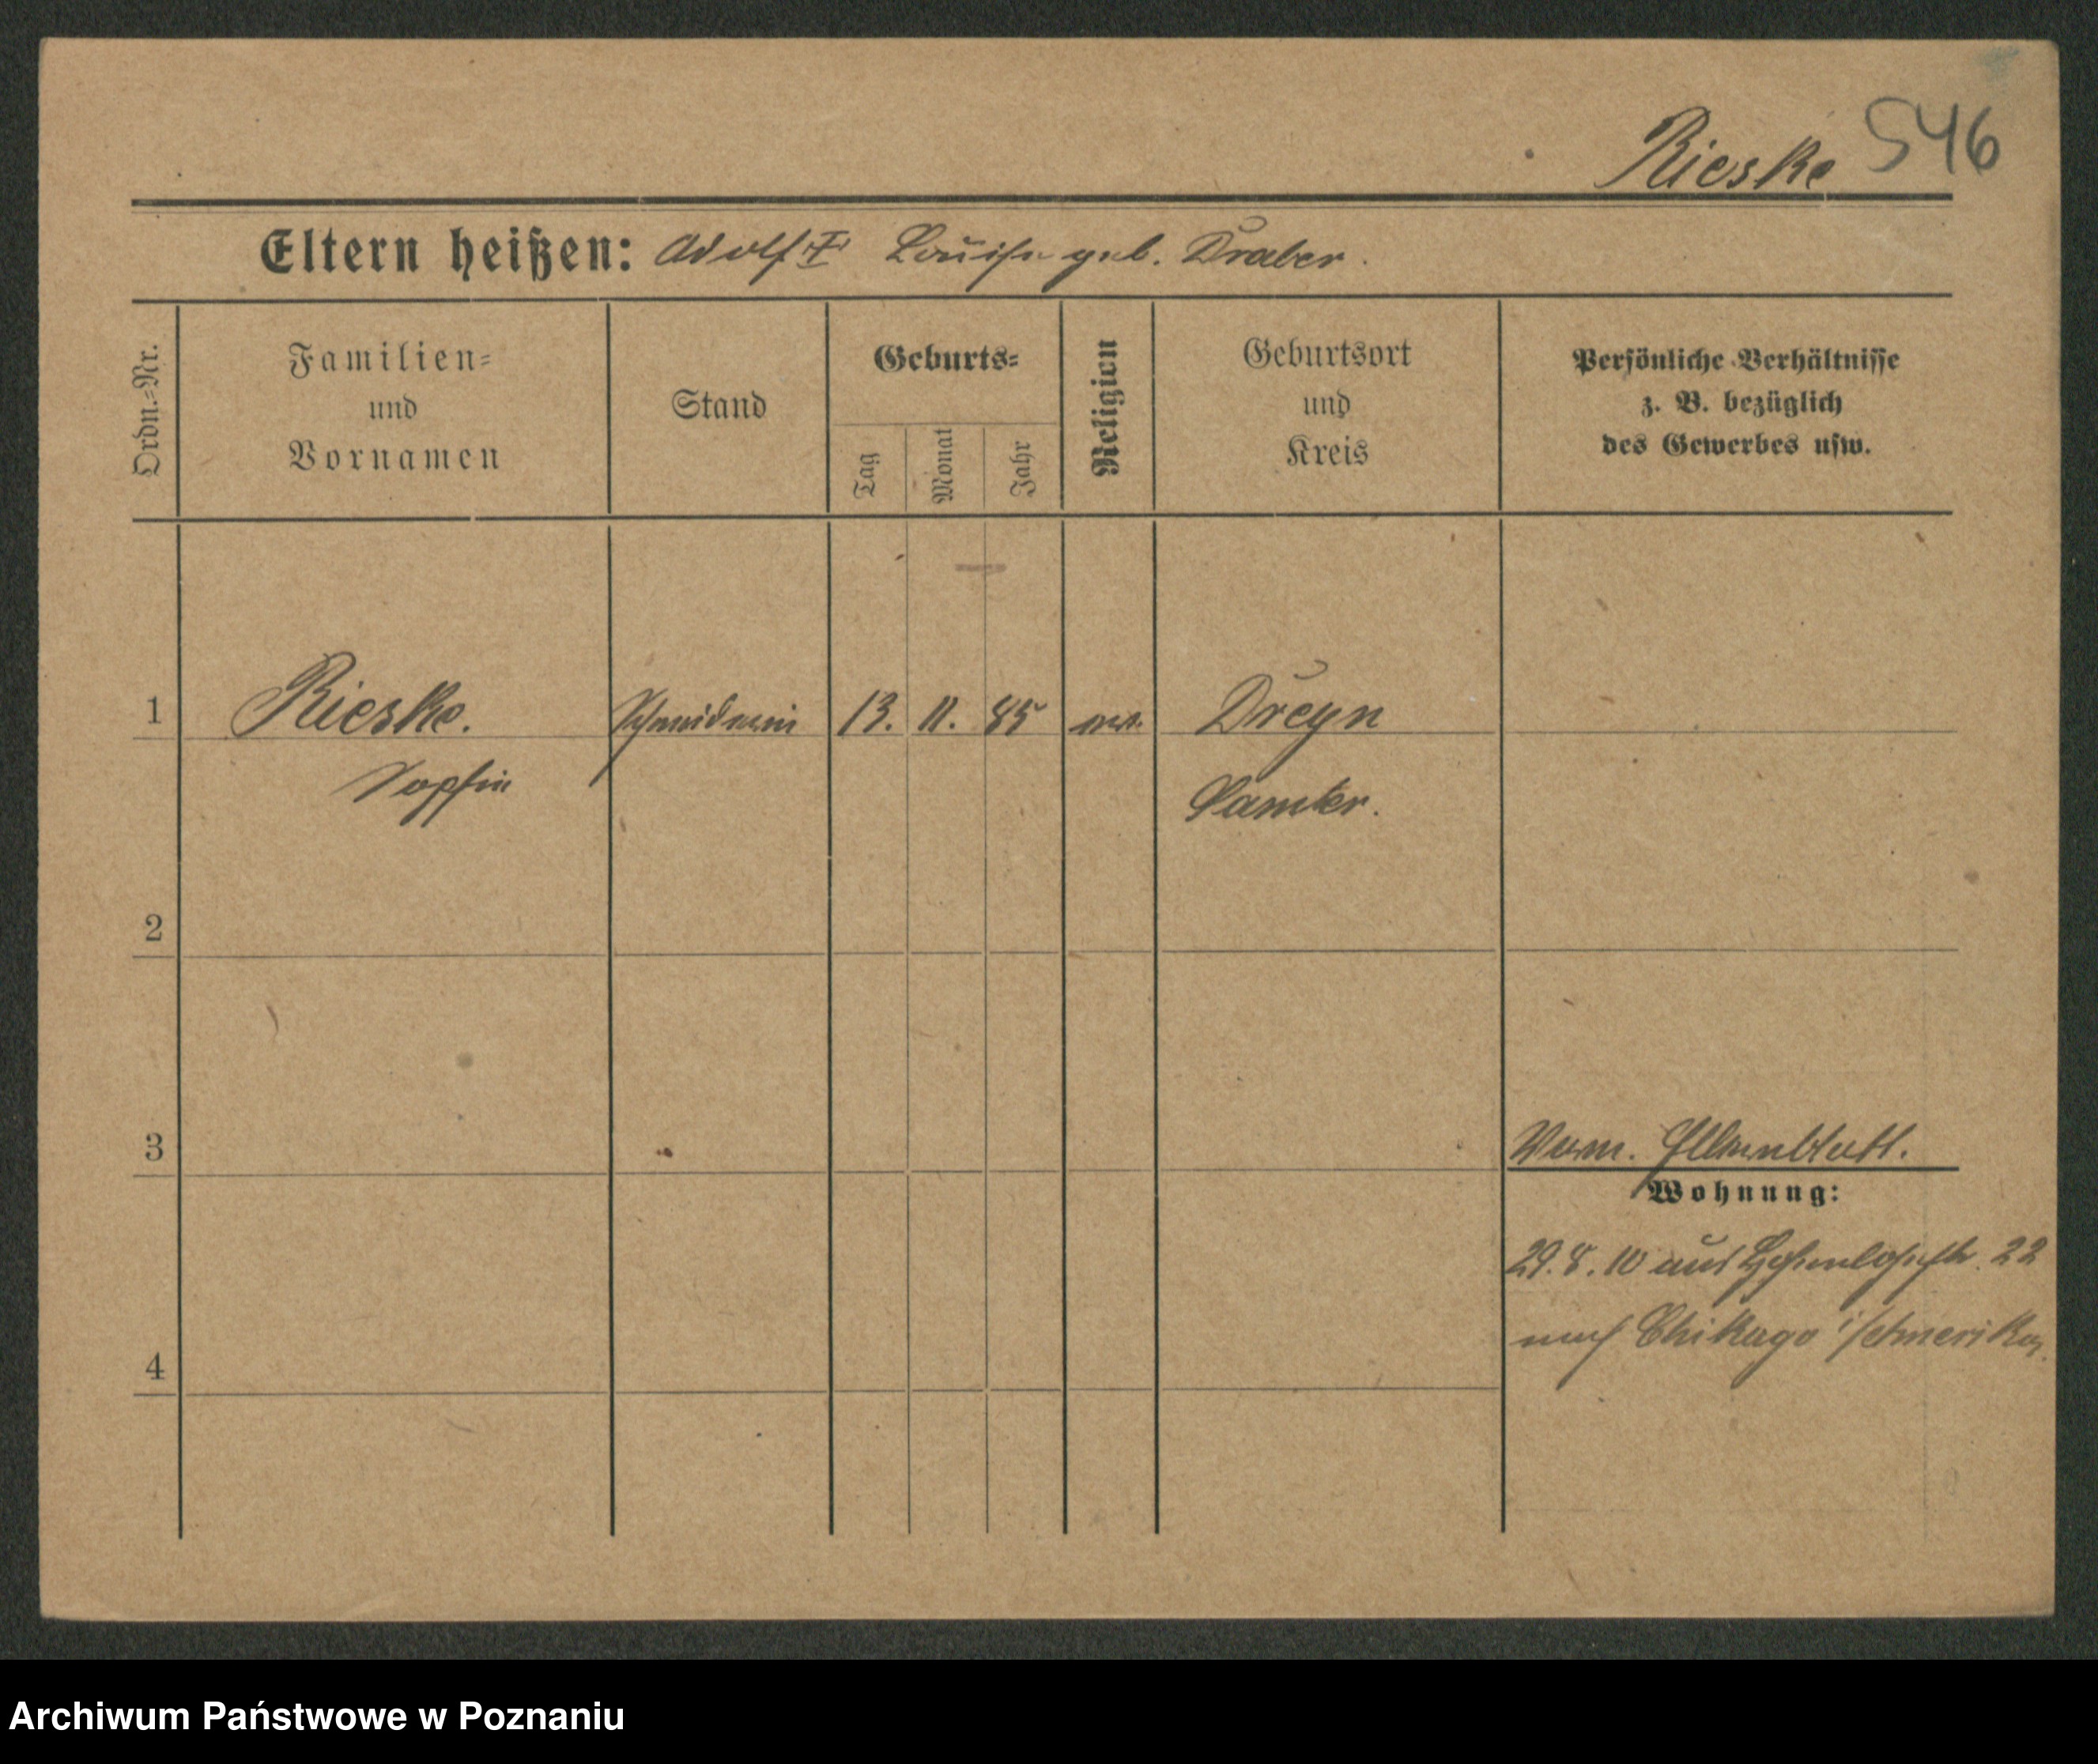 Rieske 546
Eltern heißen: Adolf I Louise geb. Draber.
Ordn.=Nr.
Familien=
und
Vornamen
Stand
Geburts=
Tag
Monat
Jahr
Religion
Geburtsort
und
Kreis
Persönliche Verhältnisse
z. B. bezüglich
des Gewerbes usw.
1 Rieske. 13. 11. 85 Dreyn
Sophie Samter.
2
3
Wohnung:
29.8.10 aus 22
nach Chikago i/Amerika
4
Archiwum Państwowe w Poznaniu